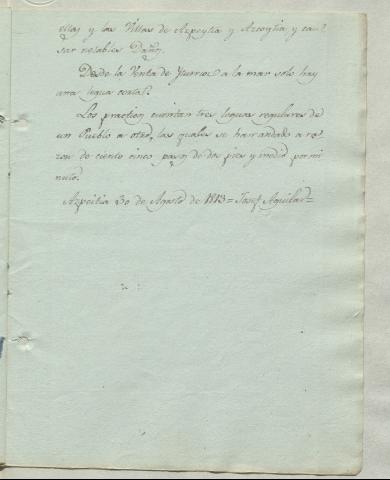 y las Villas de Azpeytia y Azcoytia y cau-
sar notables Daños.
Desde la Venta de Yturrioz a la mar solo hay
una legua escasa.
Los practicos cuentan tres leguas regulares de
un Pueblo a otro, las quales se han andado a ra-
zon de ciento cinco pasos de dos pies y medio por mi
nuto.
Azpeitia 30 de Agosto de 1813= Josef Aguilar=